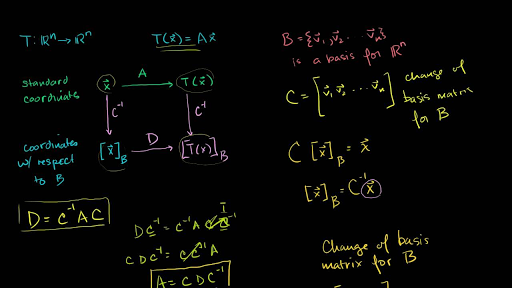 T: ℝⁿ → ℝⁿ
T(x⃗) = Ax⃗
standard
coordinates
x⃗ A T(x⃗)
C⁻¹ C⁻¹
coordinates
w/ respect
to B
[x⃗]_B D [T(x⃗)]_B
D = C⁻¹AC
DC⁻¹ = C⁻¹A CC⁻¹ I
CDC⁻¹ = CC⁻¹A
A = CDC⁻¹
B = {v⃗₁, v⃗₂ ... v⃗ₙ}
is a basis for ℝⁿ
C = [v⃗₁ v⃗₂ ... v⃗ₙ]
change of
basis matrix
for B
C [x⃗]_B = x⃗
[x⃗]_B = C⁻¹x⃗
Change of basis
matrix for B